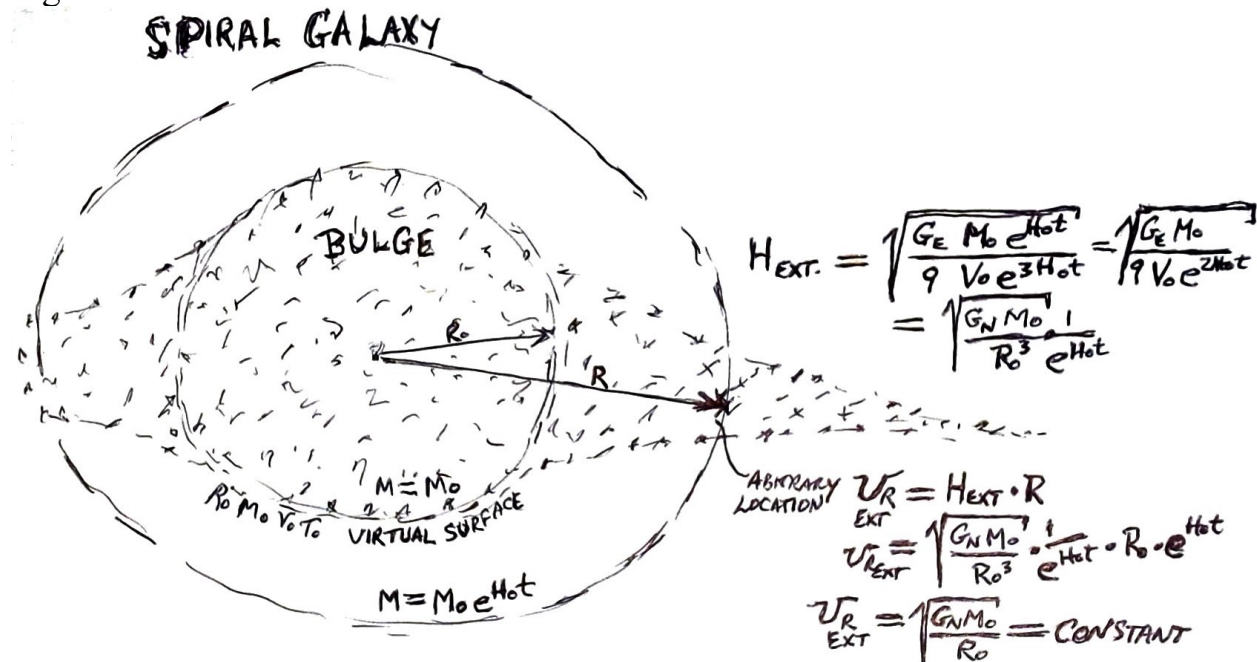 SPIRAL GALAXY
BULGE
R₀
R
M = M₀
R₀ M₀ V₀ T₀ VIRTUAL SURFACE
M = M₀ e^{H₀t}
H_{EXT.} = √(G_E M₀ e^{H₀t} / 9 V₀ e^{3H₀t}) = √(G_E M₀ / 9 V₀ e^{2H₀t})
= √(G_N M₀ / R₀³) · 1 / e^{H₀t}
ABITRARY
LOCATION
V_{R EXT} = H_{EXT} · R
V_{R EXT} = √(G_N M₀ / R₀³) · 1 / e^{H₀t} · R₀ · e^{H₀t}
V_{R EXT} = √(G_N M₀ / R₀) = CONSTANT